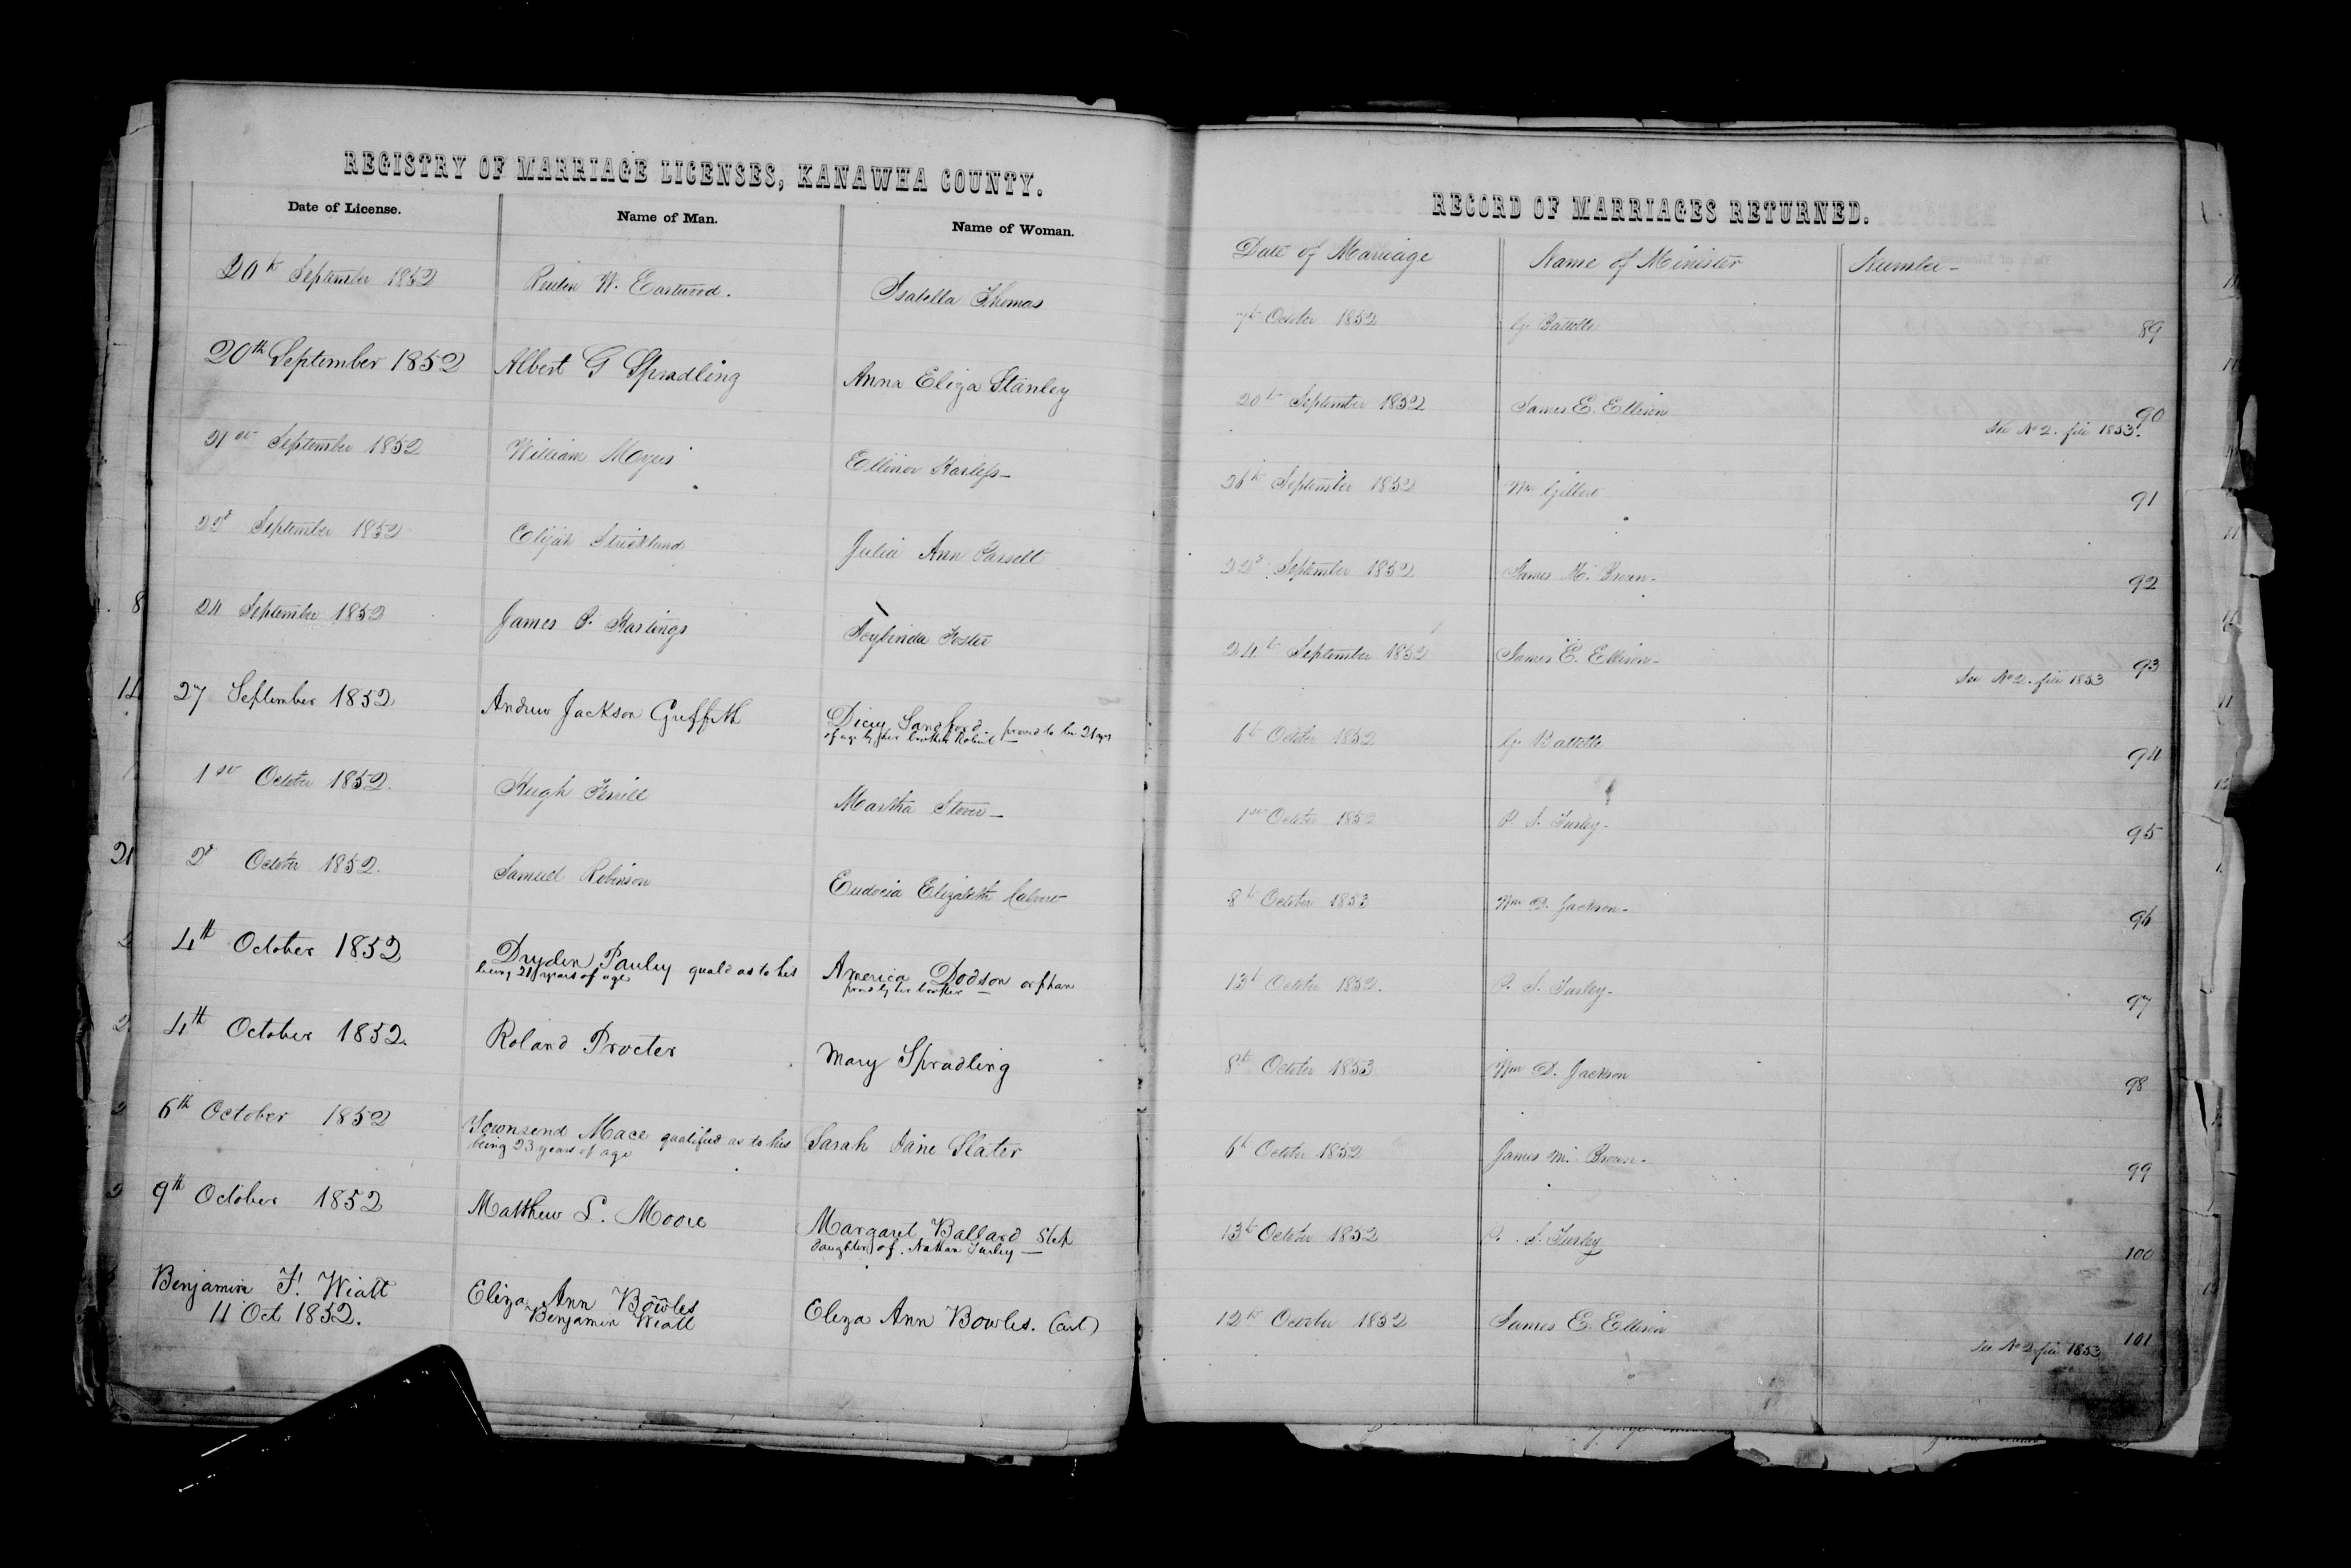 REGISTRY OF MARRIAGE LICENSES, KANAWHA COUNTY.
Date of License. Name of Man. Name of Woman.
20th September 1852 Reubin W. Eastwood. Isabella Thomas
20th September 1852 Albert G Spradling Anna Eliza Stanley
21st September 1852 William Moyers Ellinor Harless
22d September 1852 Elijah Strickland Julia Ann
24 September 1852 James P. Hastings Foster
27 September 1852 Andrew Jackson Griffith Dicey Sandford proved to be 21 yrs
of age by her brother Robert
1st October 1852. Hugh Terrill Martha Stover
2d October 1852. Samuel Robinson Eudocia Elizabeth
4th October 1852 Dryden Pauley quald as to his America Dodson orphan
being 21 years of age proved by her brother
4th October 1852. Roland Procter Mary Spradling
6th October 1852 Townsend Mace qualified as to his Sarah Jane Slater
being 23 years of age
9th October 1852 Matthew L. Moore Margaret Ballard Step
daughter of Nathan Turley
Benjamin F. Wiatt Eliza Ann Bowles Eliza Ann Bowles.
11 Oct 1852. Benjamin Wiatt
8
14
21
RECORD OF MARRIAGES RETURNED.
Date of Marriage Name of Minister Number
7th October 1852 G. Battelle 89
20th September 1852 James E. Ellison 90
See No 2. file 1853.
26th September 1852 Wm Gilbert 91
22d September 1852 James M. Brown 92
24th September 1852 James E. Ellison 93
See No 2. file 1853
6th October 1852 G. Battelle 94
1st October 1852 P. S. Turley 95
8th October 1853 Wm D. Jackson 96
13th October 1852. P. S. Turley 97
8th October 1853 Wm D. Jackson 98
6th October 1852 James M. Brown 99
13th October 1852 P. S. Turley 100
12th October 1852 James E. Ellison 101
See No 2 file 1853